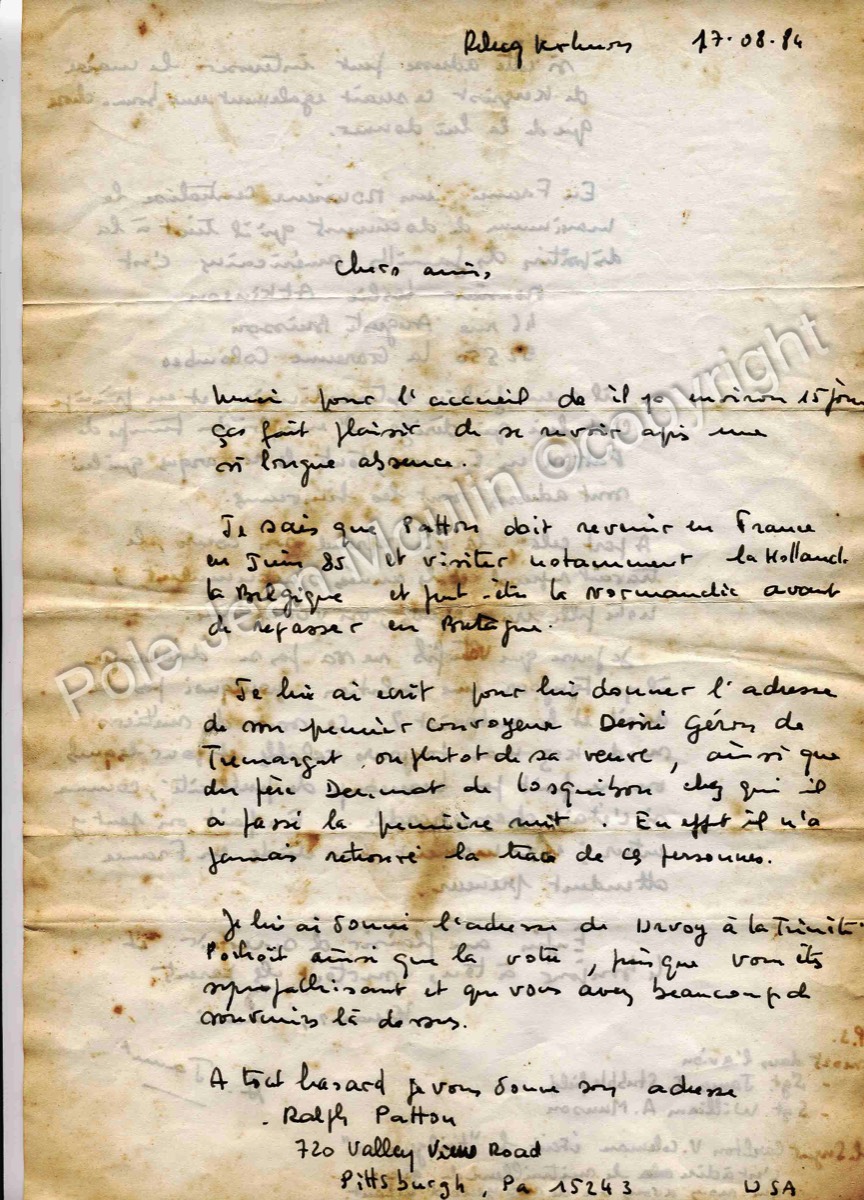 17.08.84
Chers amis,
Merci pour l'accueil de il ya environ 15 jours
ças fait plaisir de se revoir apis une
si longue absence.
Je sais que Patton doit revenir en France
en Juin 85 et visiter notamment la Holland
la Belgique et peut-être la Normandie avant
de repasser en Bretagne.
Je lui ai ecrit pour lui donner l'adresse
de son premier convoyeur Desiré Géron de
Tremargat ou plutot de sa veuve, ainsi que
du père Decimat de Losquibou chez qui il
a passé la première nuit. En effet il n'a
jamais retrouvé la trace de ces personnes.
Je lui ai donné l'adresse de à la Trinité
Porhoët ainsi que la votre, puisque vous êtes
et que vous avez beaucoup de
souvenirs là dessus.
A tout hasard je vous donne son adresse
. Ralph Patton
720 Valley View Road
Pittsburgh, Pa 15243 USA
Pôle Jean Moulin ©copyright